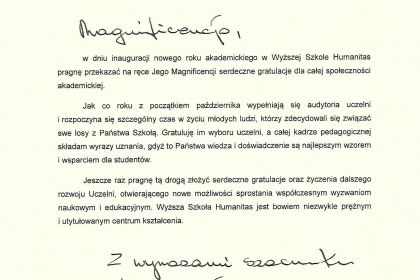 Magnificencjo,
w dniu inauguracji nowego roku akademickiego w Wyższej Szkole Humanitas
pragnę przekazać na ręce Jego Magnificencji serdeczne gratulacje dla całej społeczności
akademickiej.
Jak co roku z początkiem października wypełniają się audytoria uczelni
i rozpoczyna się szczególny czas w życiu młodych ludzi, którzy zdecydowali się związać
swe losy z Państwa Szkołą. Gratuluję im wyboru uczelni, a całej kadrze pedagogicznej
składam wyrazy uznania, gdyż to Państwa wiedza i doświadczenie są najlepszym wzorem
i wsparciem dla studentów.
Jeszcze raz pragnę tą drogą złożyć serdeczne gratulacje oraz życzenia dalszego
rozwoju Uczelni, otwierającego nowe możliwości sprostania współczesnym wyzwaniom
naukowym i edukacyjnym. Wyższa Szkoła Humanitas jest bowiem niezwykle prężnym
i utytułowanym centrum kształcenia.
Z wyrazami szacunku